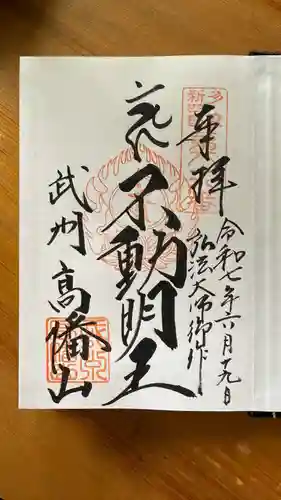 奉拝
令和七年六月十九日
弘法大師御作
不動明王
武州
高幡山